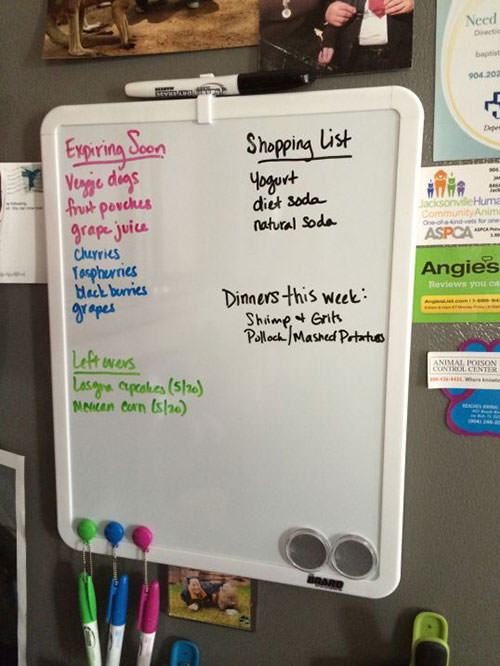 Need
Directio
baptist
904.202
Expiring Soon
Veggie dogs
fruit pouches
grape juice
cherries
raspberries
blackberries
grapes
Leftovers
Lasagna cupcakes (5/20)
Mexican corn (5/20)
Shopping List
Yogurt
diet soda
natural soda
Dinners this week:
Shrimp & Grits
Pollock/Mashed Potatoes
BOARD
Jacksonville Huma
Community Anim
One-of-a-kind-vets for one
ASPCA
Angie's
Reviews you ca
ANIMAL POISON
CONTROL CENTER